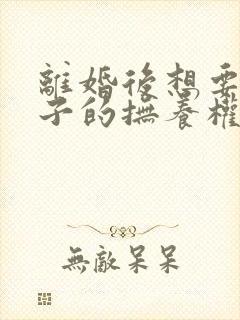 離婚後想要
子的撫養權
無敵呆呆